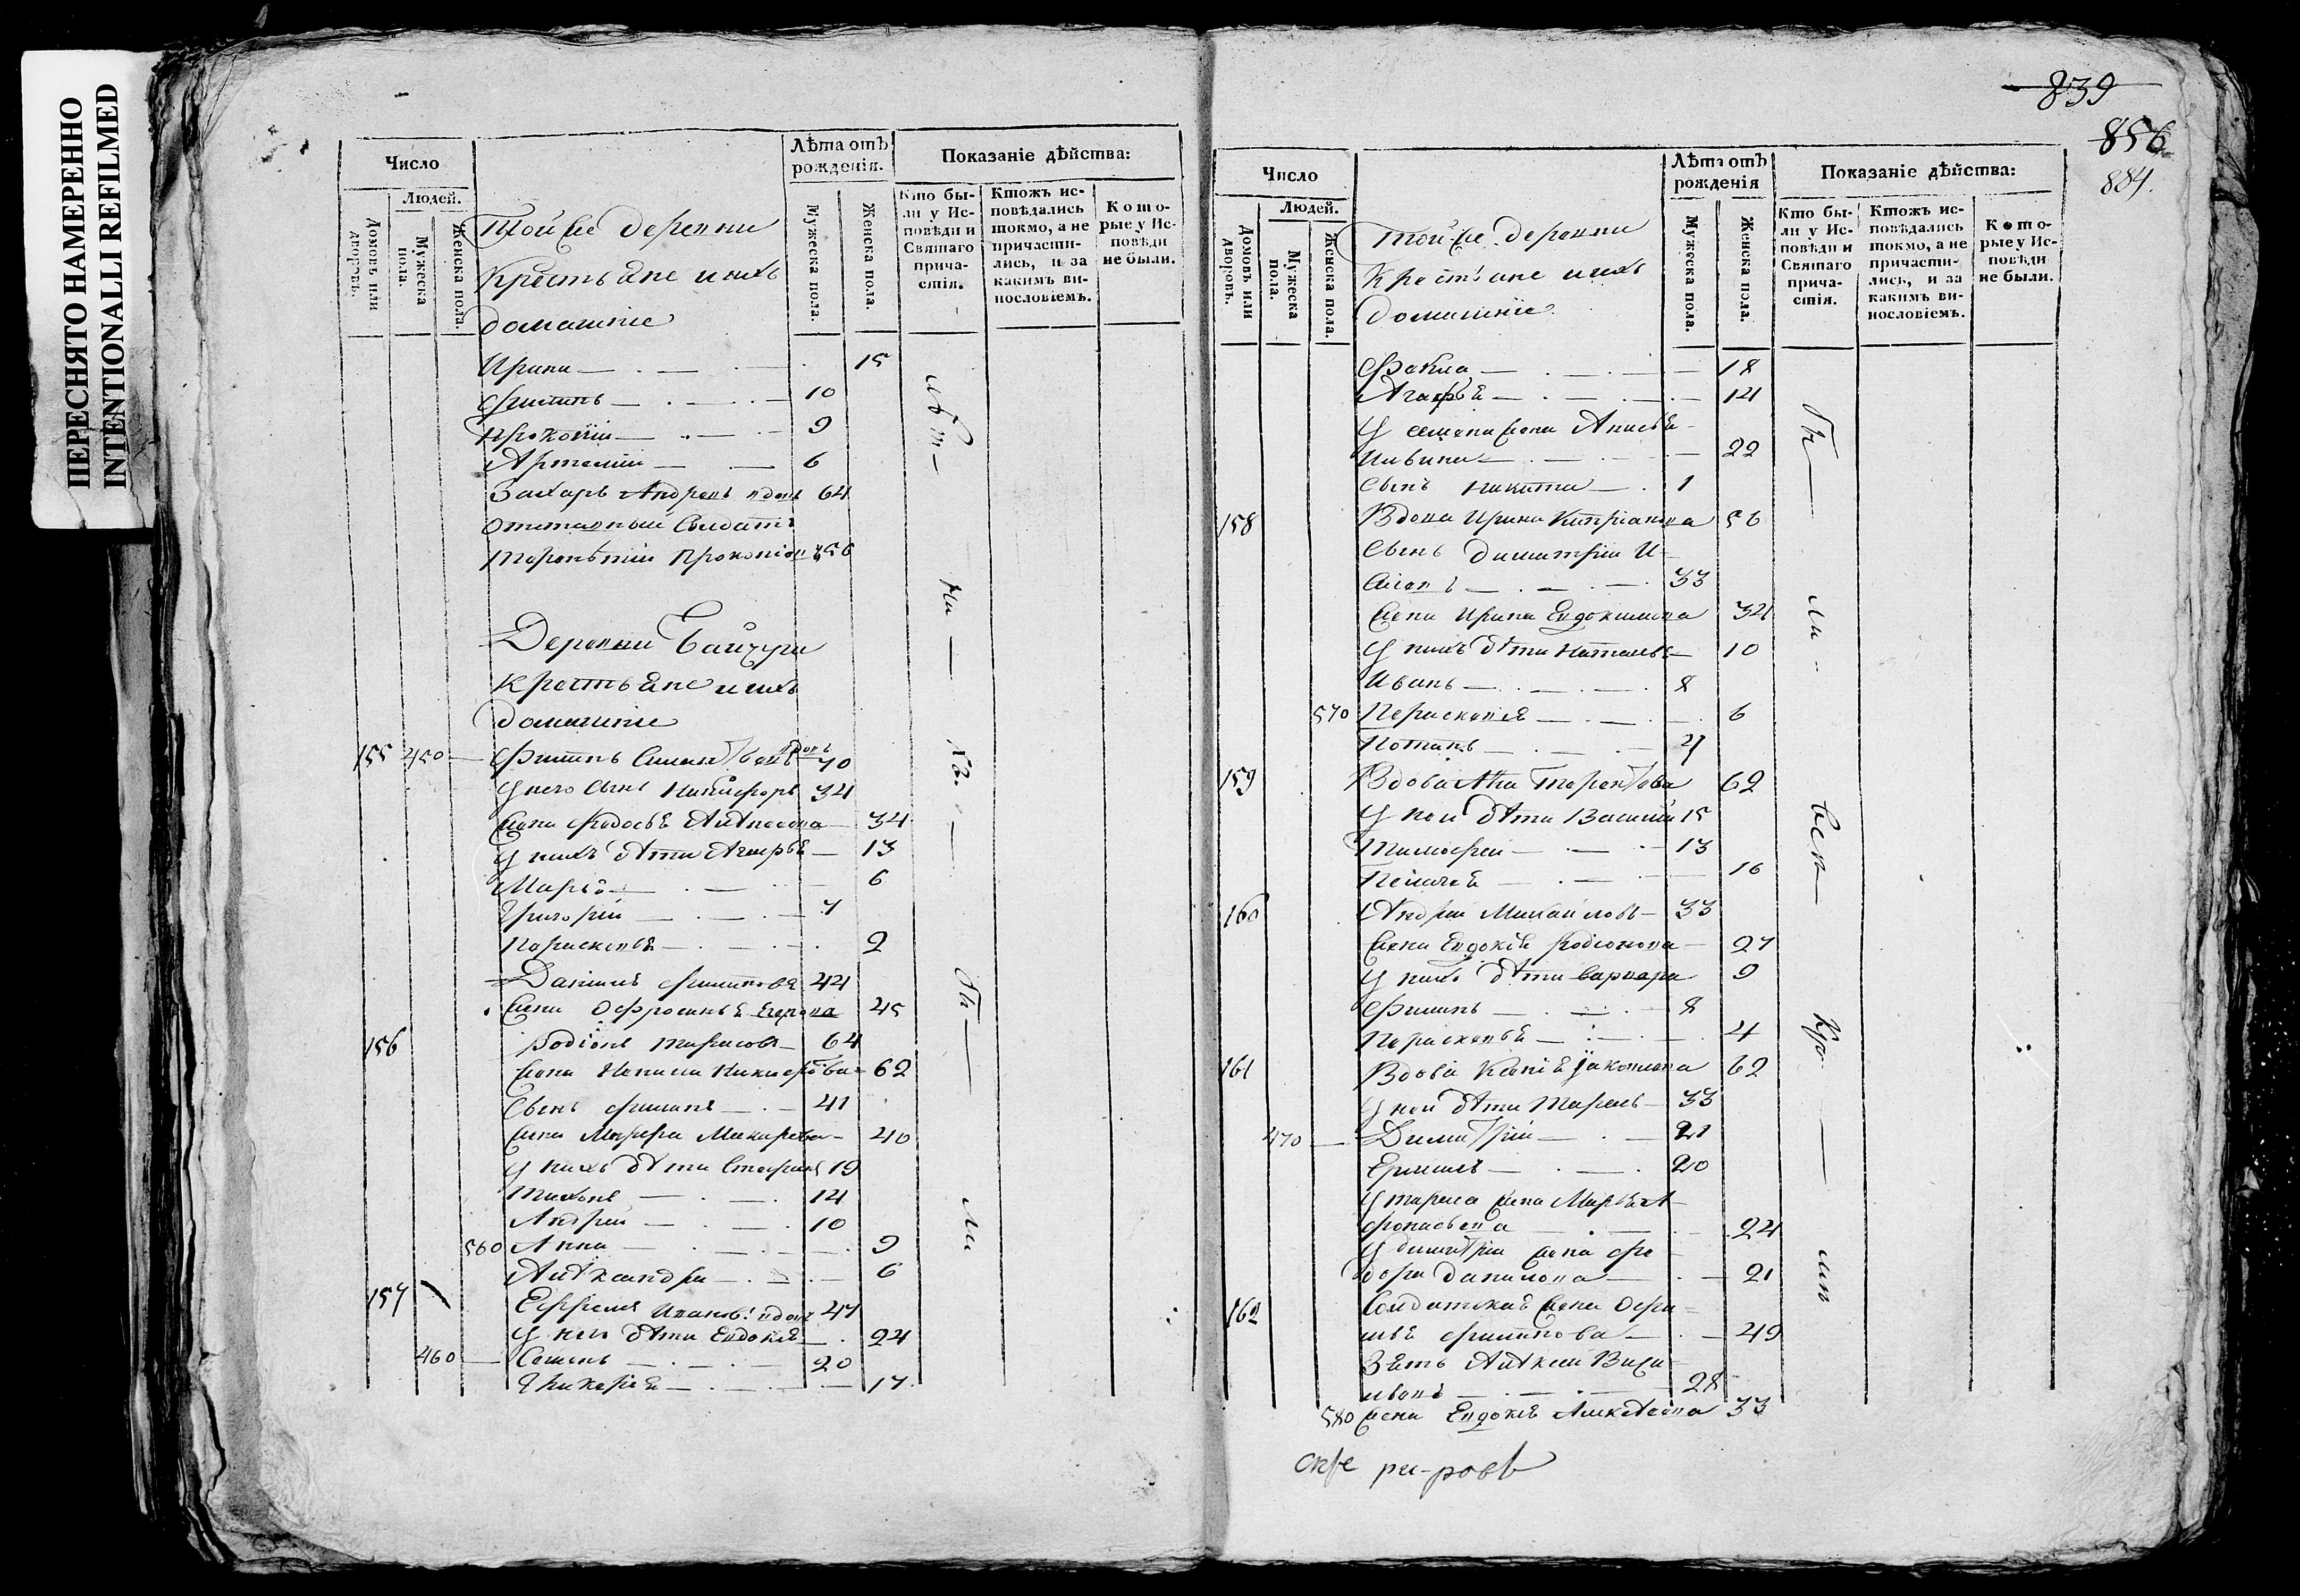 ПЕРЕСНЯТО НАМЕРЕННО
INTENTIONALLI REFILMED
Число
Людей.
Домовъ или дворовъ.
Мужеска пола.
Женска пола.
Лѣта отъ рожденія.
Мужеска пола.
Женска пола.
Показаніе дѣйства:
Кто бы-
ли у Ис-
повѣди и
Святаго
прича-
стія.
Ктожъ ис-
повѣдались
токмо, а не
причасти-
лись, и за
какимъ ви-
нословіемъ.
Кото-
рые у Ис-
повѣди
не были.
Той же деревни
Крестьяне и ихъ
домашніе
Ирина 15
Филипъ 10
Прокопій 9
Артемій 6
Захаръ Андреевъ вдовъ 64
Отставный Солдатъ
Терентій Прокопіевъ 56
Деревни Байчуги
Крестьяне и ихъ
домашніе
155 450 Филипъ вдовъ 70
У него сынъ Никифоръ 34
Жена Федосья 34
У нихъ дѣти Агафья 13
Марья 6
Григорій 7
Параскевья 2
Даніилъ Филиповъ 44
Жена Офросинья Егорова 45
156 Родіонъ Тарасовъ 64
Жена Ненила Никифорова 62
Сынъ Филипъ 41
Жена Марфа Макарова 40
У нихъ дѣти Стефанъ 19
Тихонъ 14
Андрей 10
560 Анна 9
Александра 6
157 Ефремъ Ивановъ вдовъ 47
У него дѣти Евдокія 24
460 Семенъ 20
Гликерія 17
839
856
884.
Число
Людей.
Домовъ или дворовъ.
Мужеска пола.
Женска пола.
Лѣта отъ рожденія
Мужеска пола.
Женска пола.
Показаніе дѣйства:
Кто бы-
ли у Ис-
повѣди и
Святаго
прича-
стія.
Ктожъ ис-
повѣдались
токмо, а не
причасти-
лись, и за
какимъ ви-
нословіемъ.
Кото-
рые у Ис-
повѣди
не были.
Той же деревни
Крестьяне и ихъ
Домашніе
Фекла 18
Агафья 14
У семена жена Анисья
22
Сынъ Никита 1
158 Вдова Ирина Кипріанова 56
Сынъ Димитрій
33
Жена Ирина Евдокимова 34
У нихъ дѣти Наталья 10
Иванъ 8
570 Параскевья 6
Потапъ
159 Вдова Терентьева 62
У ней дѣти Василій 15
Тимофей 13
Пелагея 16
160 Андрей Михайловъ 33
Жена Евдокія Родіонова 27
У нихъ дѣти Варвара 9
Филипъ 8
Параскевья 4
161 Вдова Ксенія 62
У ней дѣти Тарасъ 33
470 Димитрій 21
Ермилъ 20
У тараса жена Марья А-
фонасьева 24
У димитрія жена Фе-
дора Данилова 21
162 Солдатская жена
Филипова 49
Зять Алексей Васи-
льевъ 28
580 Жена Евдокія Алексеева 33